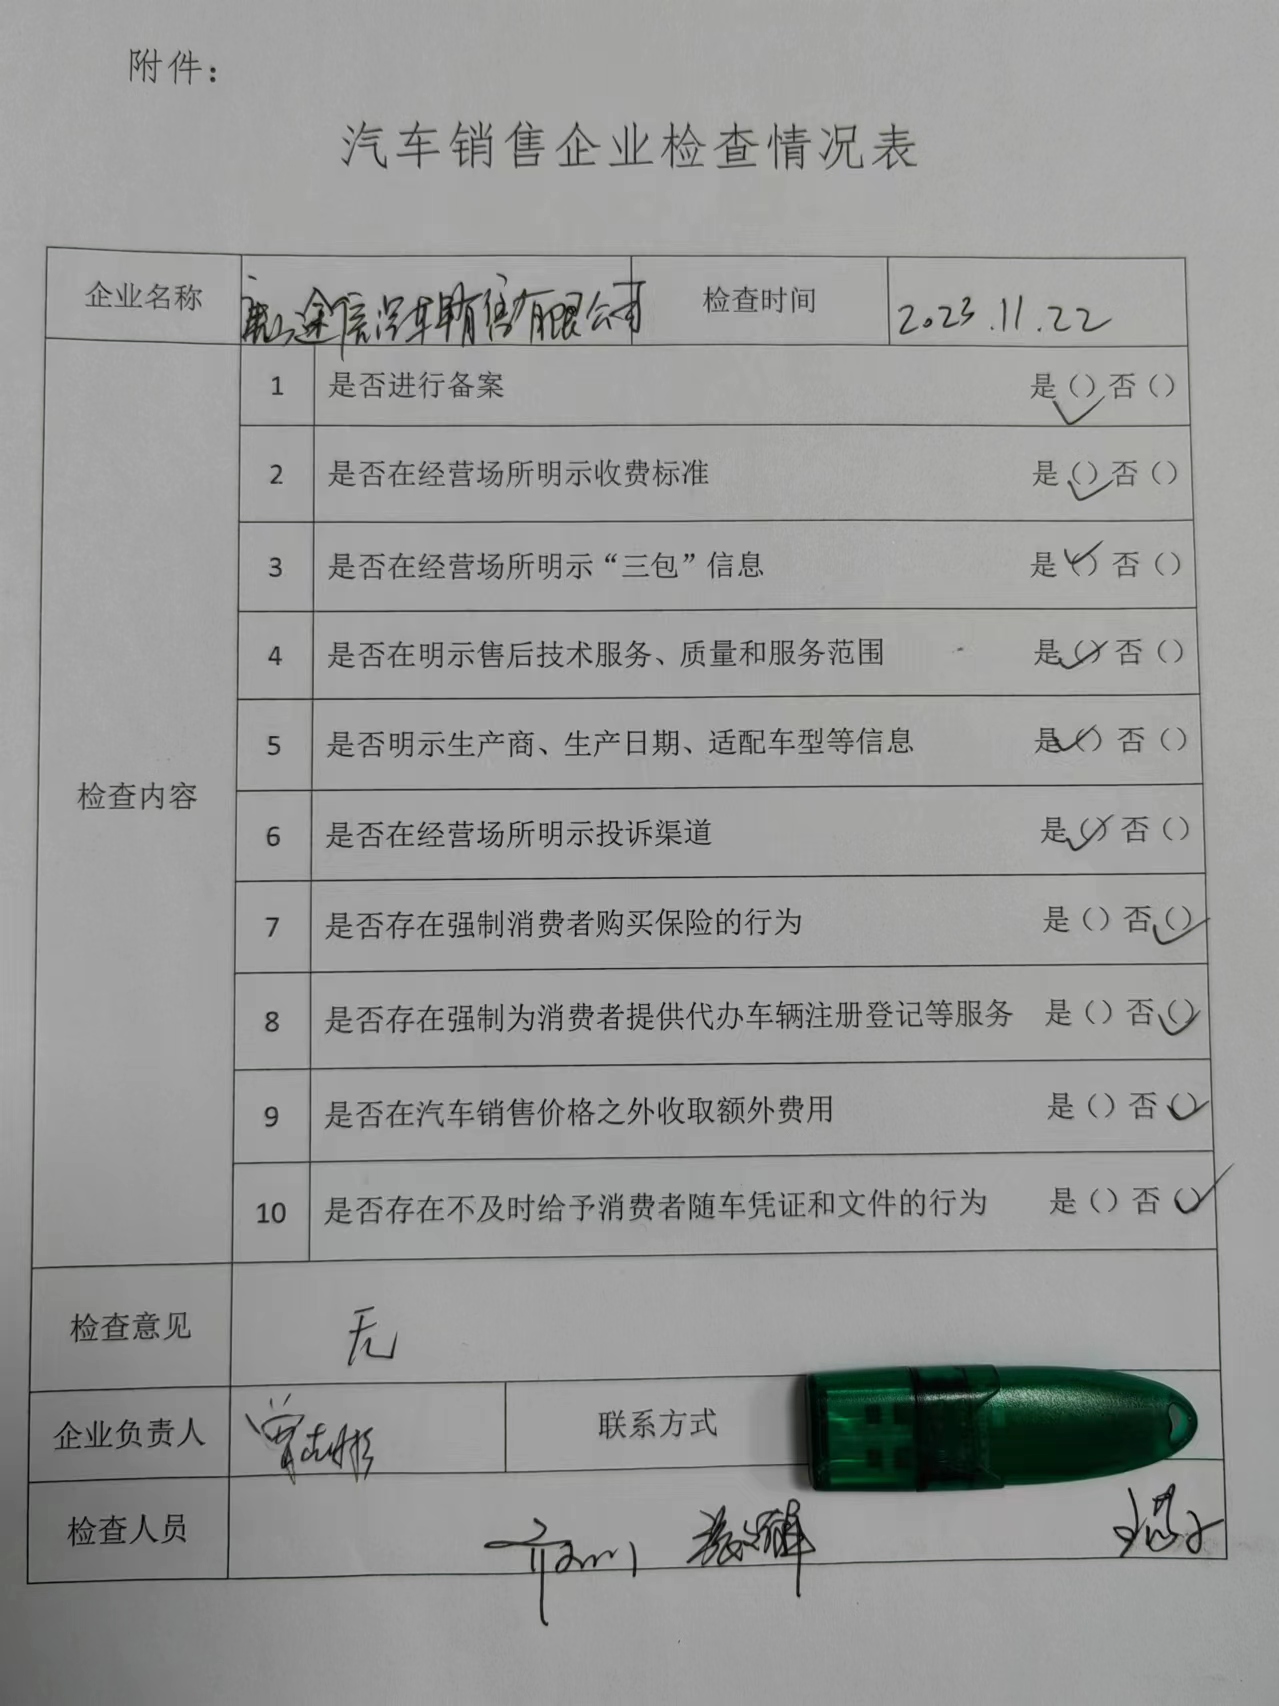 附件：
汽车销售企业检查情况表
企业名称 途信汽车销售有限公司 检查时间 2023.11.22
检查内容
1 是否进行备案 是（）✓否（）
2 是否在经营场所明示收费标准 是（）✓否（）
3 是否在经营场所明示“三包”信息 是（）✓否（）
4 是否在明示售后技术服务、质量和服务范围 是（）✓否（）
5 是否明示生产商、生产日期、适配车型等信息 是（）✓否（）
6 是否在经营场所明示投诉渠道 是（）✓否（）
7 是否存在强制消费者购买保险的行为 是（）否（）✓
8 是否存在强制为消费者提供代办车辆注册登记等服务 是（）否（）✓
9 是否在汽车销售价格之外收取额外费用 是（）否（）✓
10 是否存在不及时给予消费者随车凭证和文件的行为 是（）否（）✓
检查意见 无
企业负责人 联系方式
检查人员